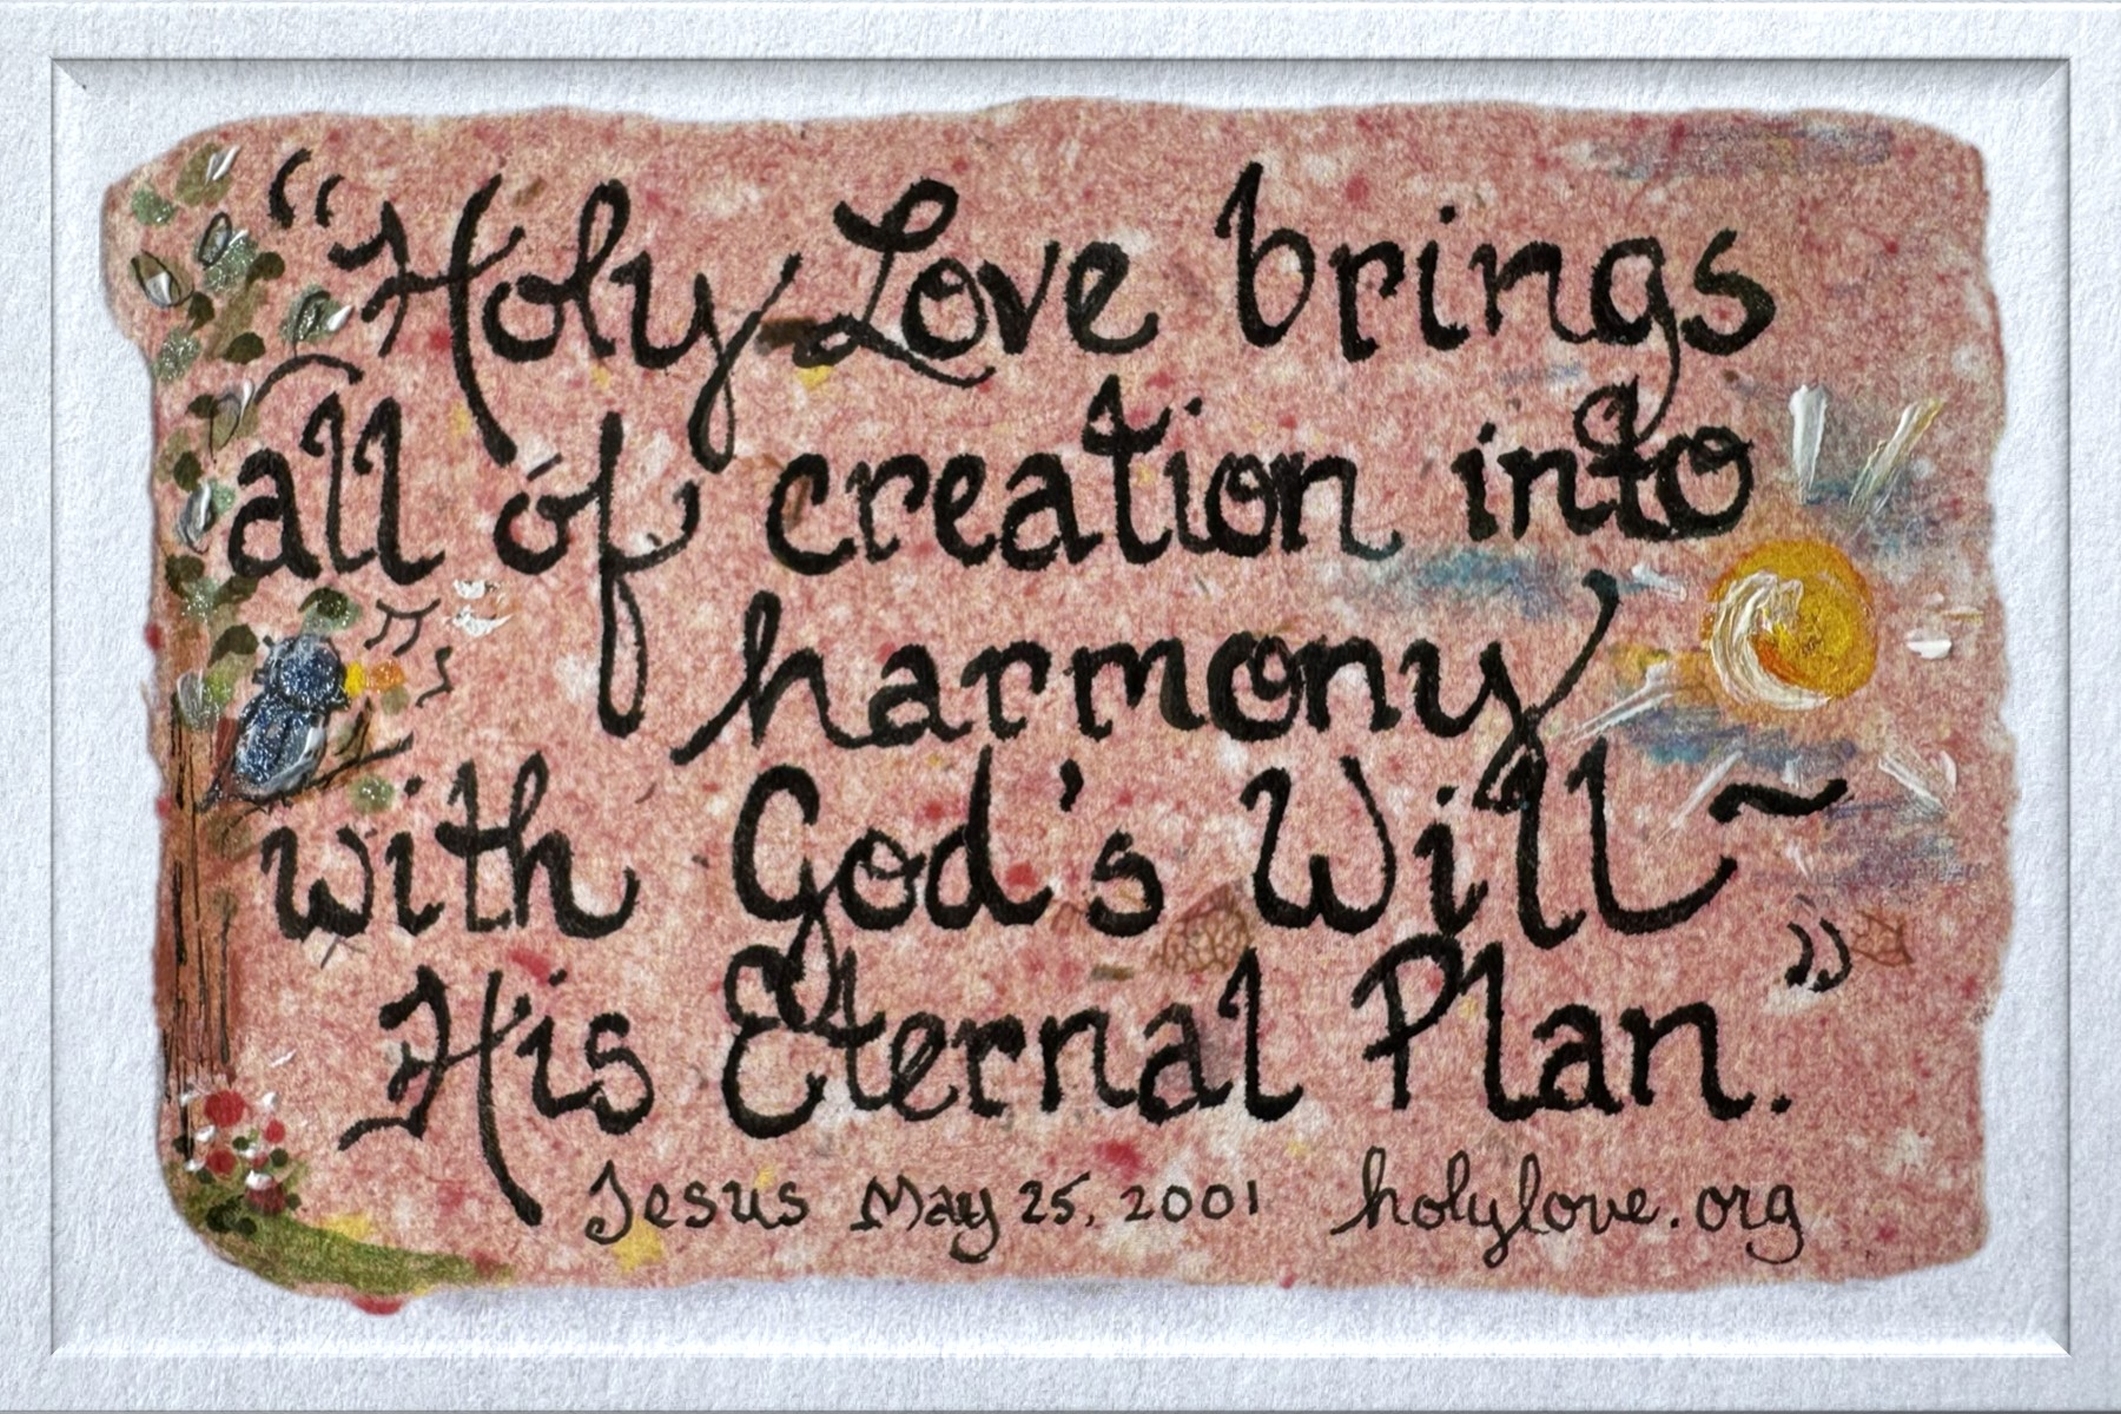 “Holy Love brings
all of creation into
harmony
with God's Will ~
His Eternal Plan.”
Jesus May 25, 2001 holylove.org